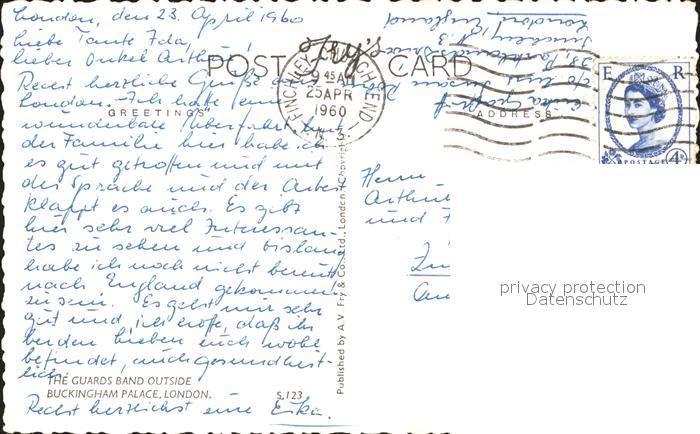 London, den 23. April 1960
Liebe Tante Ida,
lieber Onkel Arthur!
Recht herzliche Grüße aus
London. Ich hatte eine
wunderbare Überfahrt. Mit
der Familie hier habe ich
es gut getroffen und mit
der Sprache und der Arbeit
klappt es auch. Es gibt
hier sehr viel Interessan-
tes zu sehen und bislang
habe ich noch nicht bereut
nach England gekommen
zu sein. Es geht mir sehr
gut und ich hoffe, daß ihr
beiden lieben euch wohl
befindet, auch gesundheit-
lich.
THE GUARDS BAND OUTSIDE
BUCKINGHAM PALACE, LONDON. S.123
Recht herzlichst eure Erika.
POST CARD
Fry's
GREETINGS
ADDRESS
FINCHLEY CHURCH END
9 45 AM
25 APR
1960
N.3.
London, England
Finchley, N.3
E R
POSTAGE 4D
Published by A.V. Fry & Co., Ltd., London. (Copyright)
Herrn
Arthur
und
privacy protection
Datenschutz